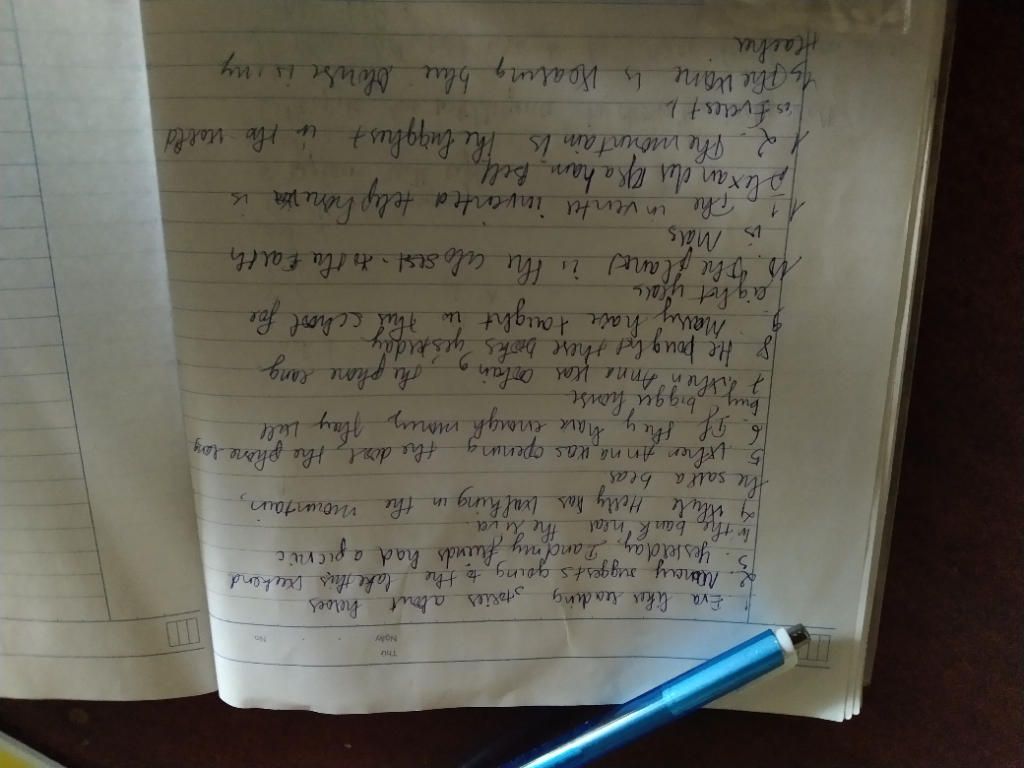 Thứ
Ngày No.
1. Eva likes reading stories about heroes
2. Nancy suggests going to the lake this weekend
3. Yesterday, I and my friends had a picnic
in the bank near the riva.
4 While Helly was walking in the mountain,
he saw a bear
5 When Anna was opening the door, the phone rang
6. If they have enough money, they will
buy bigger house
7. When Anna was the phone rang
8 He bought these books yesterday
9. Marry have taught in this school for
eight years
10. The planet is the closest to the Earth
is Mars
11. The invente invented telephone is
Alexander Graham Bell
12. The mountain is the highest in the world
is Everest
13 The is wearing blue blouse is my
teacher